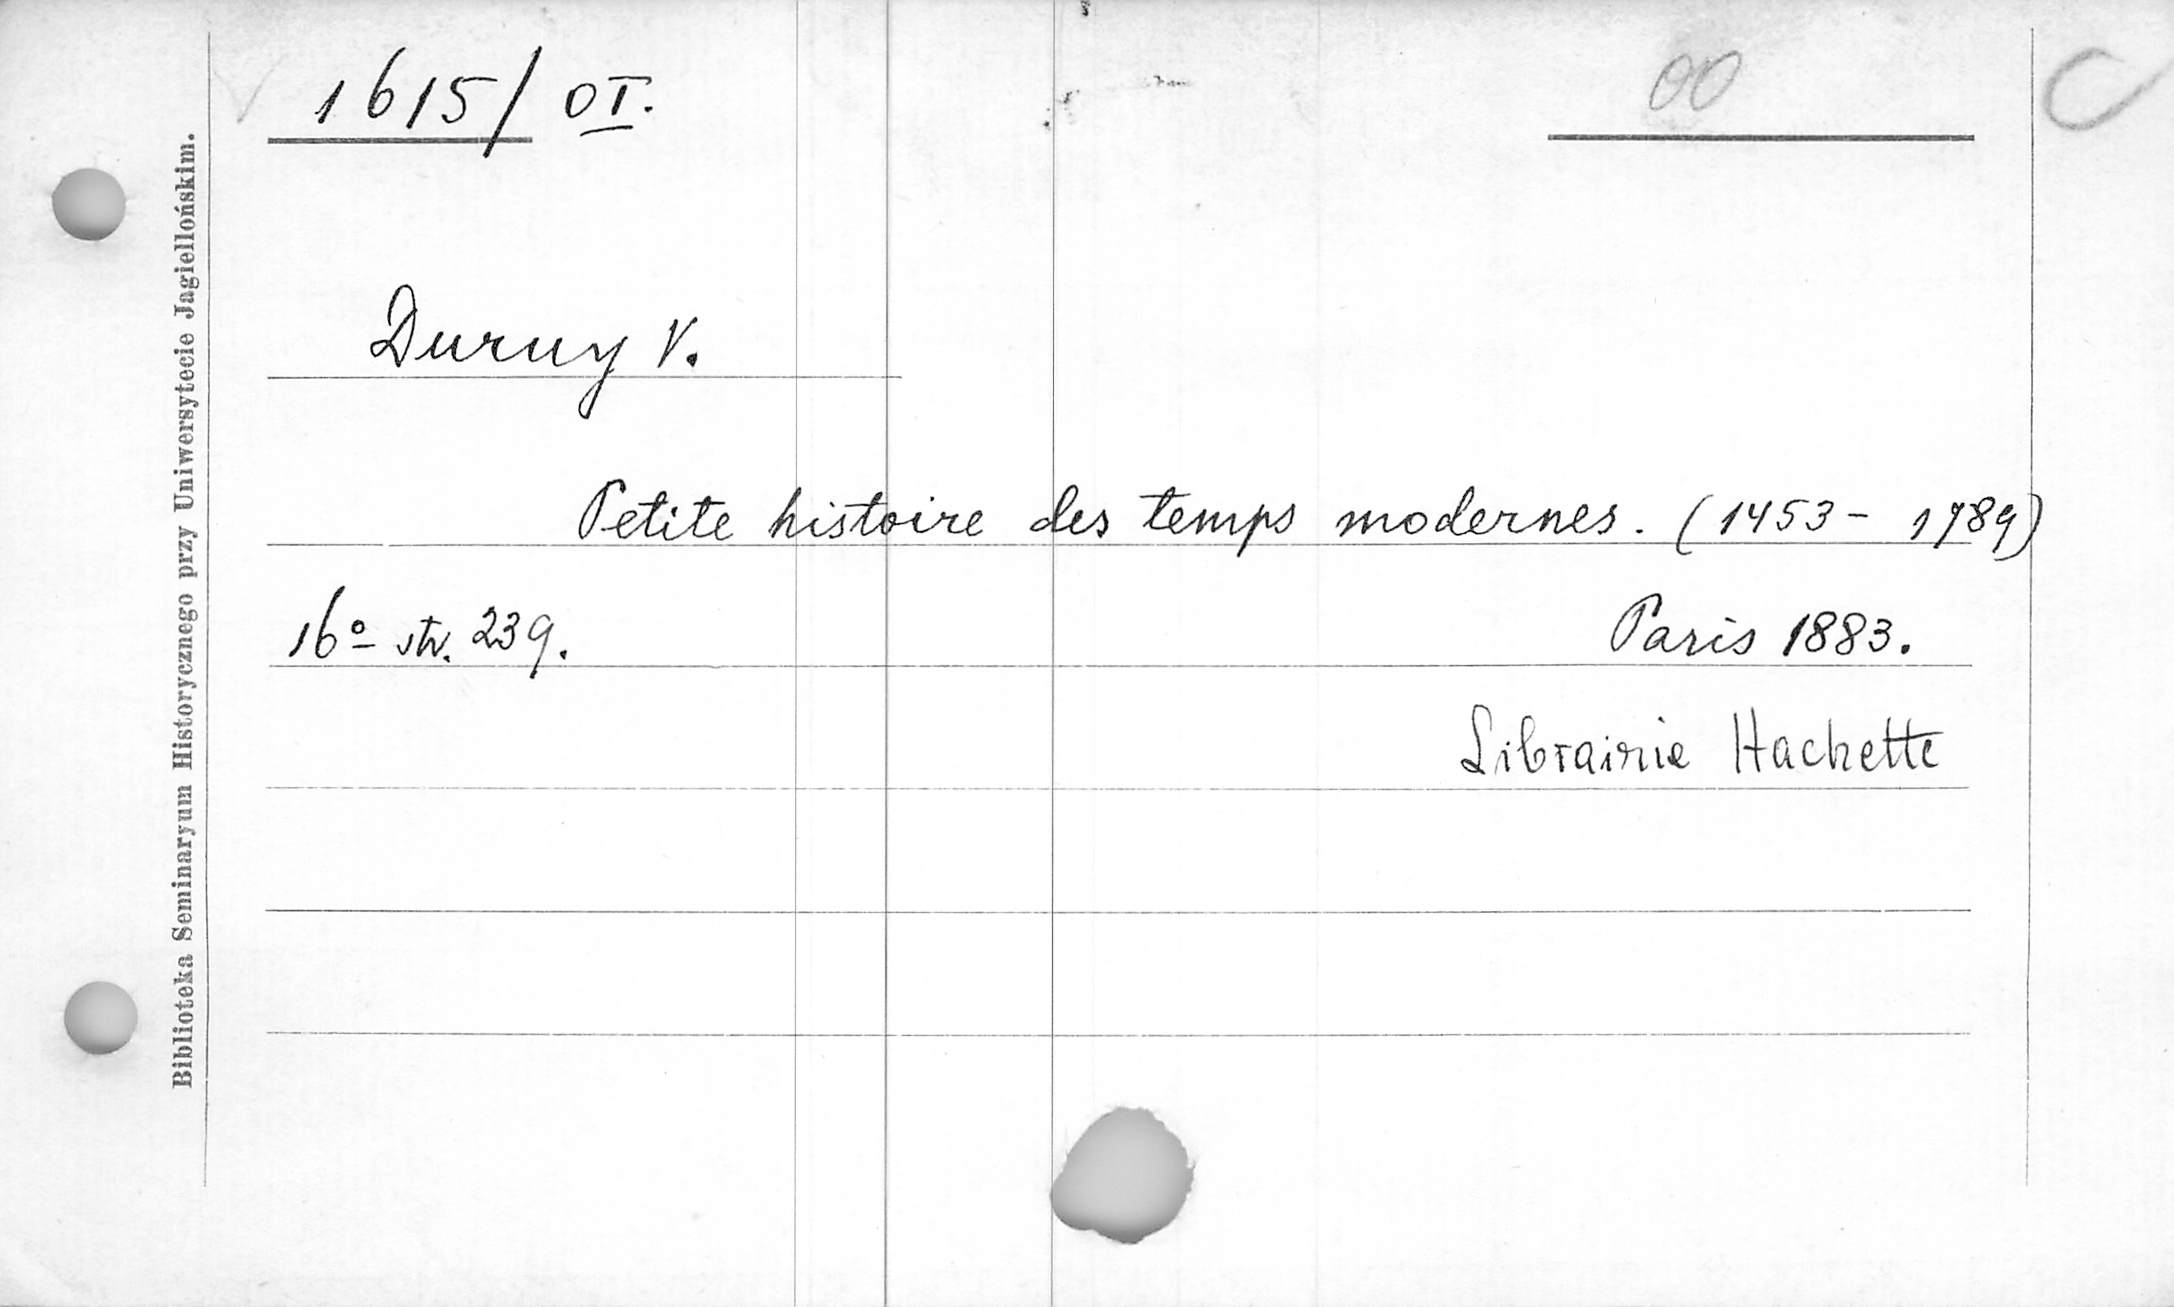 1615/ OI.
00
C
Duruy V.
Petite histoire des temps modernes. (1453 - 1789)
16° str. 239.
Paris 1883.
Librairie Hachette
Biblioteka Seminaryum Historycznego przy Uniwersytecie Jagiellońskim.